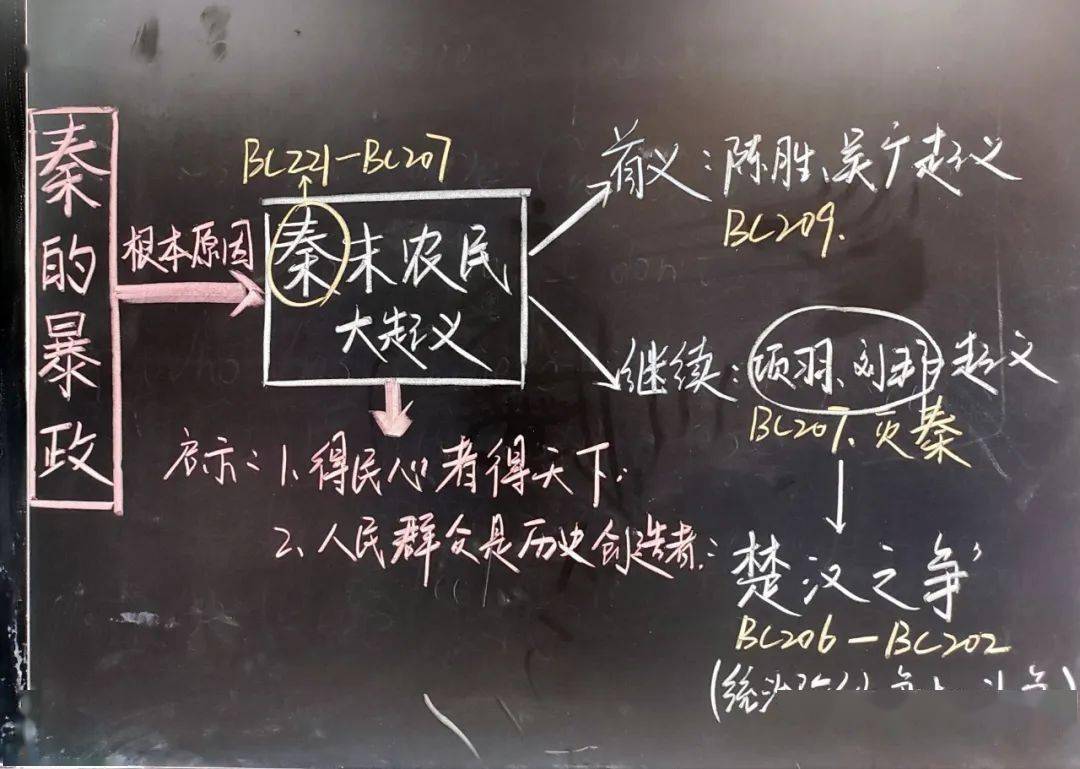 秦的暴政
根本原因
BC221-BC207
秦末农民
大起义
首义:陈胜、吴广起义
BC209.
继续:项羽、刘邦起义
BC207.灭秦
启示:1.得民心者得天下.
2、人民群众是历史创造者.
楚汉之争
BC206-BC202